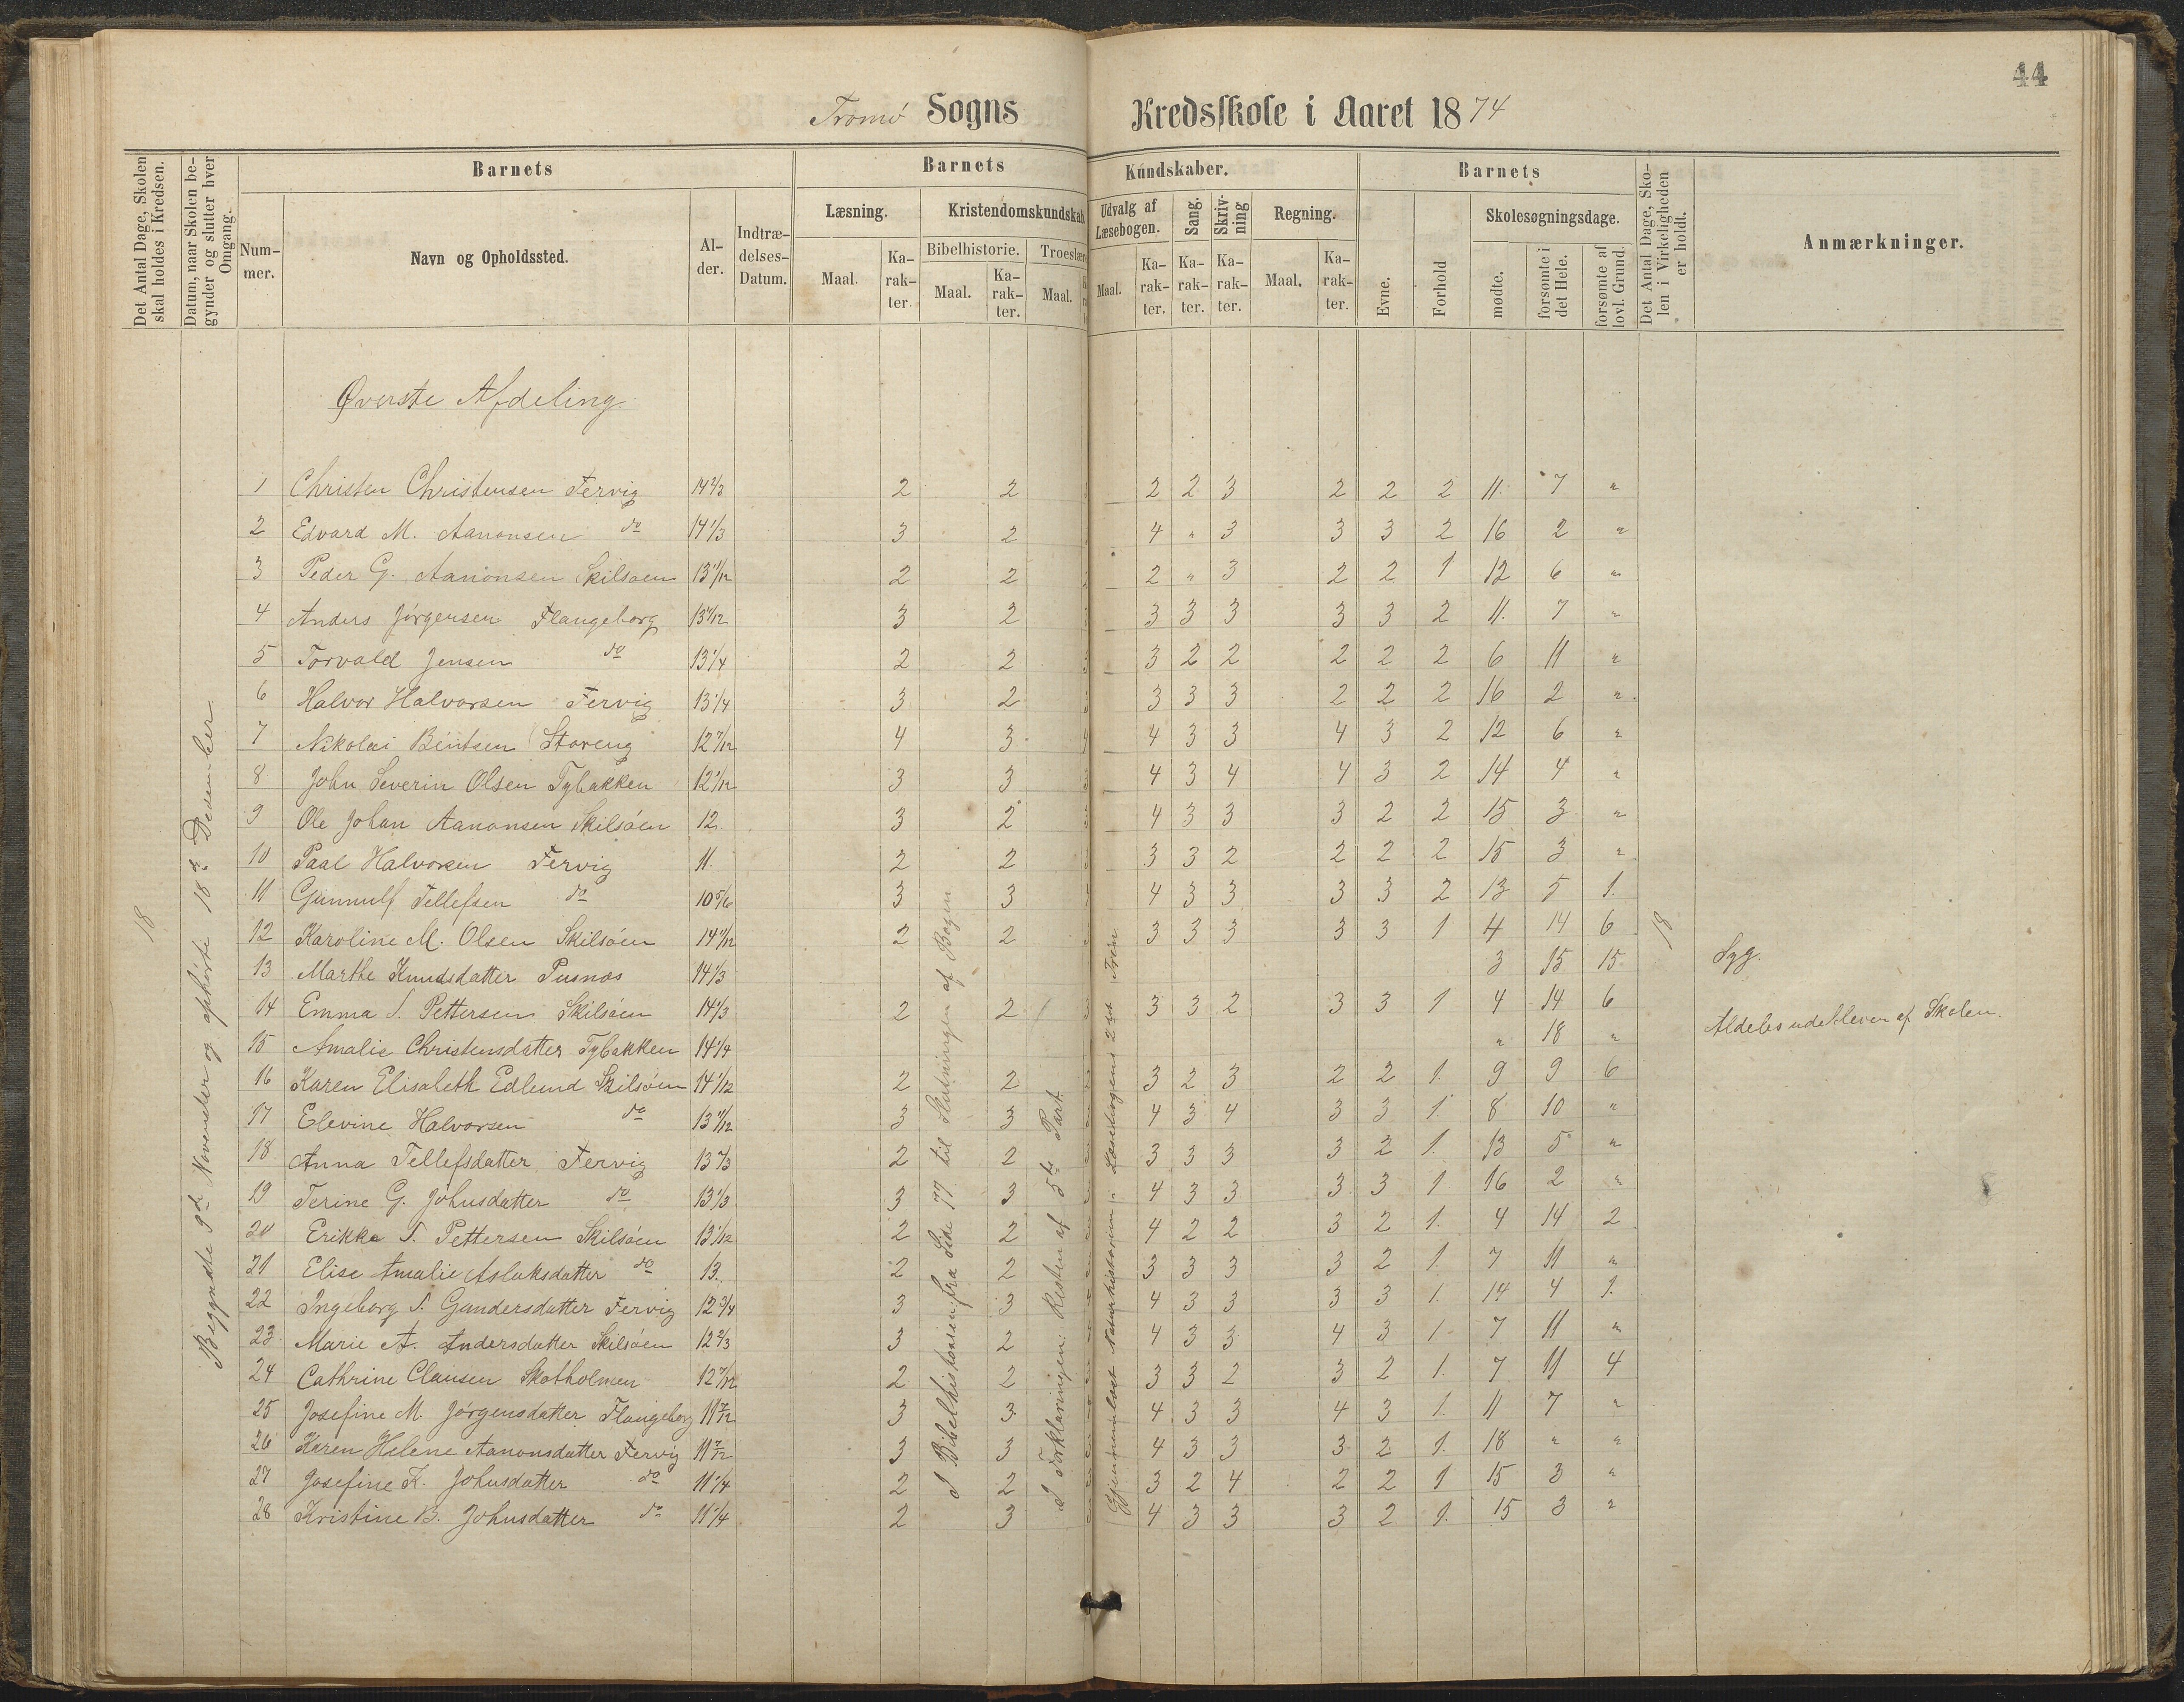 44
Tromø Sogns Kredsskole i Aaret 1874
Det Antal Dage, Skolen skal holdes i Kredsen.
Datum, naar Skolen begynder og slutter hver Omgang.
Barnets
Nummer.
Navn og Opholdssted.
Alder.
Indtrædelses-Datum.
Barnets Kundskaber.
Læsning.
Maal.
Karakter.
Kristendomskundskab
Bibelhistorie.
Maal.
Karakter.
Troeslære
Maal.
Udvalg af Læsebogen.
Maal.
Karakter.
Sang.
Karakter.
Skrivning
Karakter.
Regning.
Maal.
Karakter.
Barnets
Evne.
Forhold
Skolesøgningsdage.
mødte.
forsømte i det Hele.
forsømte af lovl. Grund.
Det Antal Dage, Skolen i Virkeligheden er holdt.
Anmærkninger.
Øverste Afdeling.
1 Christen Christensen Fervig 14 2/3 2 2 2 2 3 2 2 2 11. 7 "
2 Edvard M. Aanonsen do 14 1/3 3 2 4 " 3 3 3 2 16 2 "
3 Peder G. Aanonsen Skilsøen 13 11/12 2 2 2 " 3 2 2 1 12 6 "
4 Anders Jørgensen Flangeborg 13 11/12 3 2 3 3 3 3 3 2 11. 7 "
5 Torvald Jensen do 13 1/4 2 2 3 2 2 2 2 2 6 11 "
6 Halvor Halvorsen Fervig 13 1/4 3 2 3 3 3 2 2 2 16 2 "
7 Nikolai Bentsen Storeng 12 7/12 4 3 4 3 3 4 3 2 12 6 "
8 John Severin Olsen Tybakken 12 1/12 3 3 4 3 4 4 3 2 14 4 "
9 Ole Johan Aanonsen Skilsøen 12. 3 2 4 3 3 3 2 2 15 3 "
10 Paal Halvorsen Fervig 11. 2 2 3 3 2 2 2 2 15 3 "
11 Gunnulf Tellefsen do 10 5/6 3 3 4 3 3 3 3 2 13 5 1.
12 Karoline M. Olsen Skilsøen 14 11/12 2 2 3 3 3 3 3 1 4 14 6
13 Marthe Knudsdatter Pusnes 14 1/3 3 15 15 Syg.
14 Emma S. Pettersen Skilsøen 14 1/3 2 2 3 3 2 3 3 1 4 14 6
15 Amalie Christensdatter Tybakken 14 1/4 " 18 " Aldeles udebleven af Skolen.
16 Karen Elisabeth Edlund Skilsøen 14 1/12 2 2 3 2 3 2 2 1. 9 9 6
17 Elevine Halvorsen do 13 11/12 3 3 4 3 4 3 3 1. 8 10 "
18 Anna Tellefsdatter Fervig 13 2/3 2 2 3 3 3 3 2 1. 13 5 "
19 Terine G. Johnsdatter do 13 1/3 3 3 4 3 3 3 3 1 16 2 "
20 Erikke S. Pettersen Skilsøen 13 1/12 2 2 4 2 2 3 2 1. 4 14 2
21 Elise Amalie Aslaksdatter do 13. 2 2 3 3 3 3 2 1. 7 11 "
22 Ingeborg S. Gundersdatter Fervig 12 3/4 3 3 4 3 3 3 3 1 14 4 1.
23 Marie A. Andersdatter Skilsøen 12 2/3 3 2 4 3 3 4 3 1 7 11 "
24 Cathrine Clausen Skotholmen 12 7/12 2 2 3 3 2 3 2 1. 7 11 4
25 Josefine M. Jørgensdatter Flangeborg 11 7/12 3 3 4 3 3 4 3 1. 11 7 "
26 Karen Helene Aanonsdatter Fervig 11 7/12 3 3 4 3 3 3 2 1. 18 " "
27 Josefine K. Johnsdatter do 11 1/4 2 2 3 2 4 2 2 1 15 3 "
28 Kristine B. Johnsdatter do 11 1/4 2 3 4 3 3 3 2 1. 15 3 "
18
Begyndte 9de November og ophørte 18de December
I Bibelhistorien fra Side 77 til Slutningen af Bogen
I Forklaringen: Resten af 5te Part.
Gjennemlæst Naturhistorien i Læsebogens 2det Trin
18